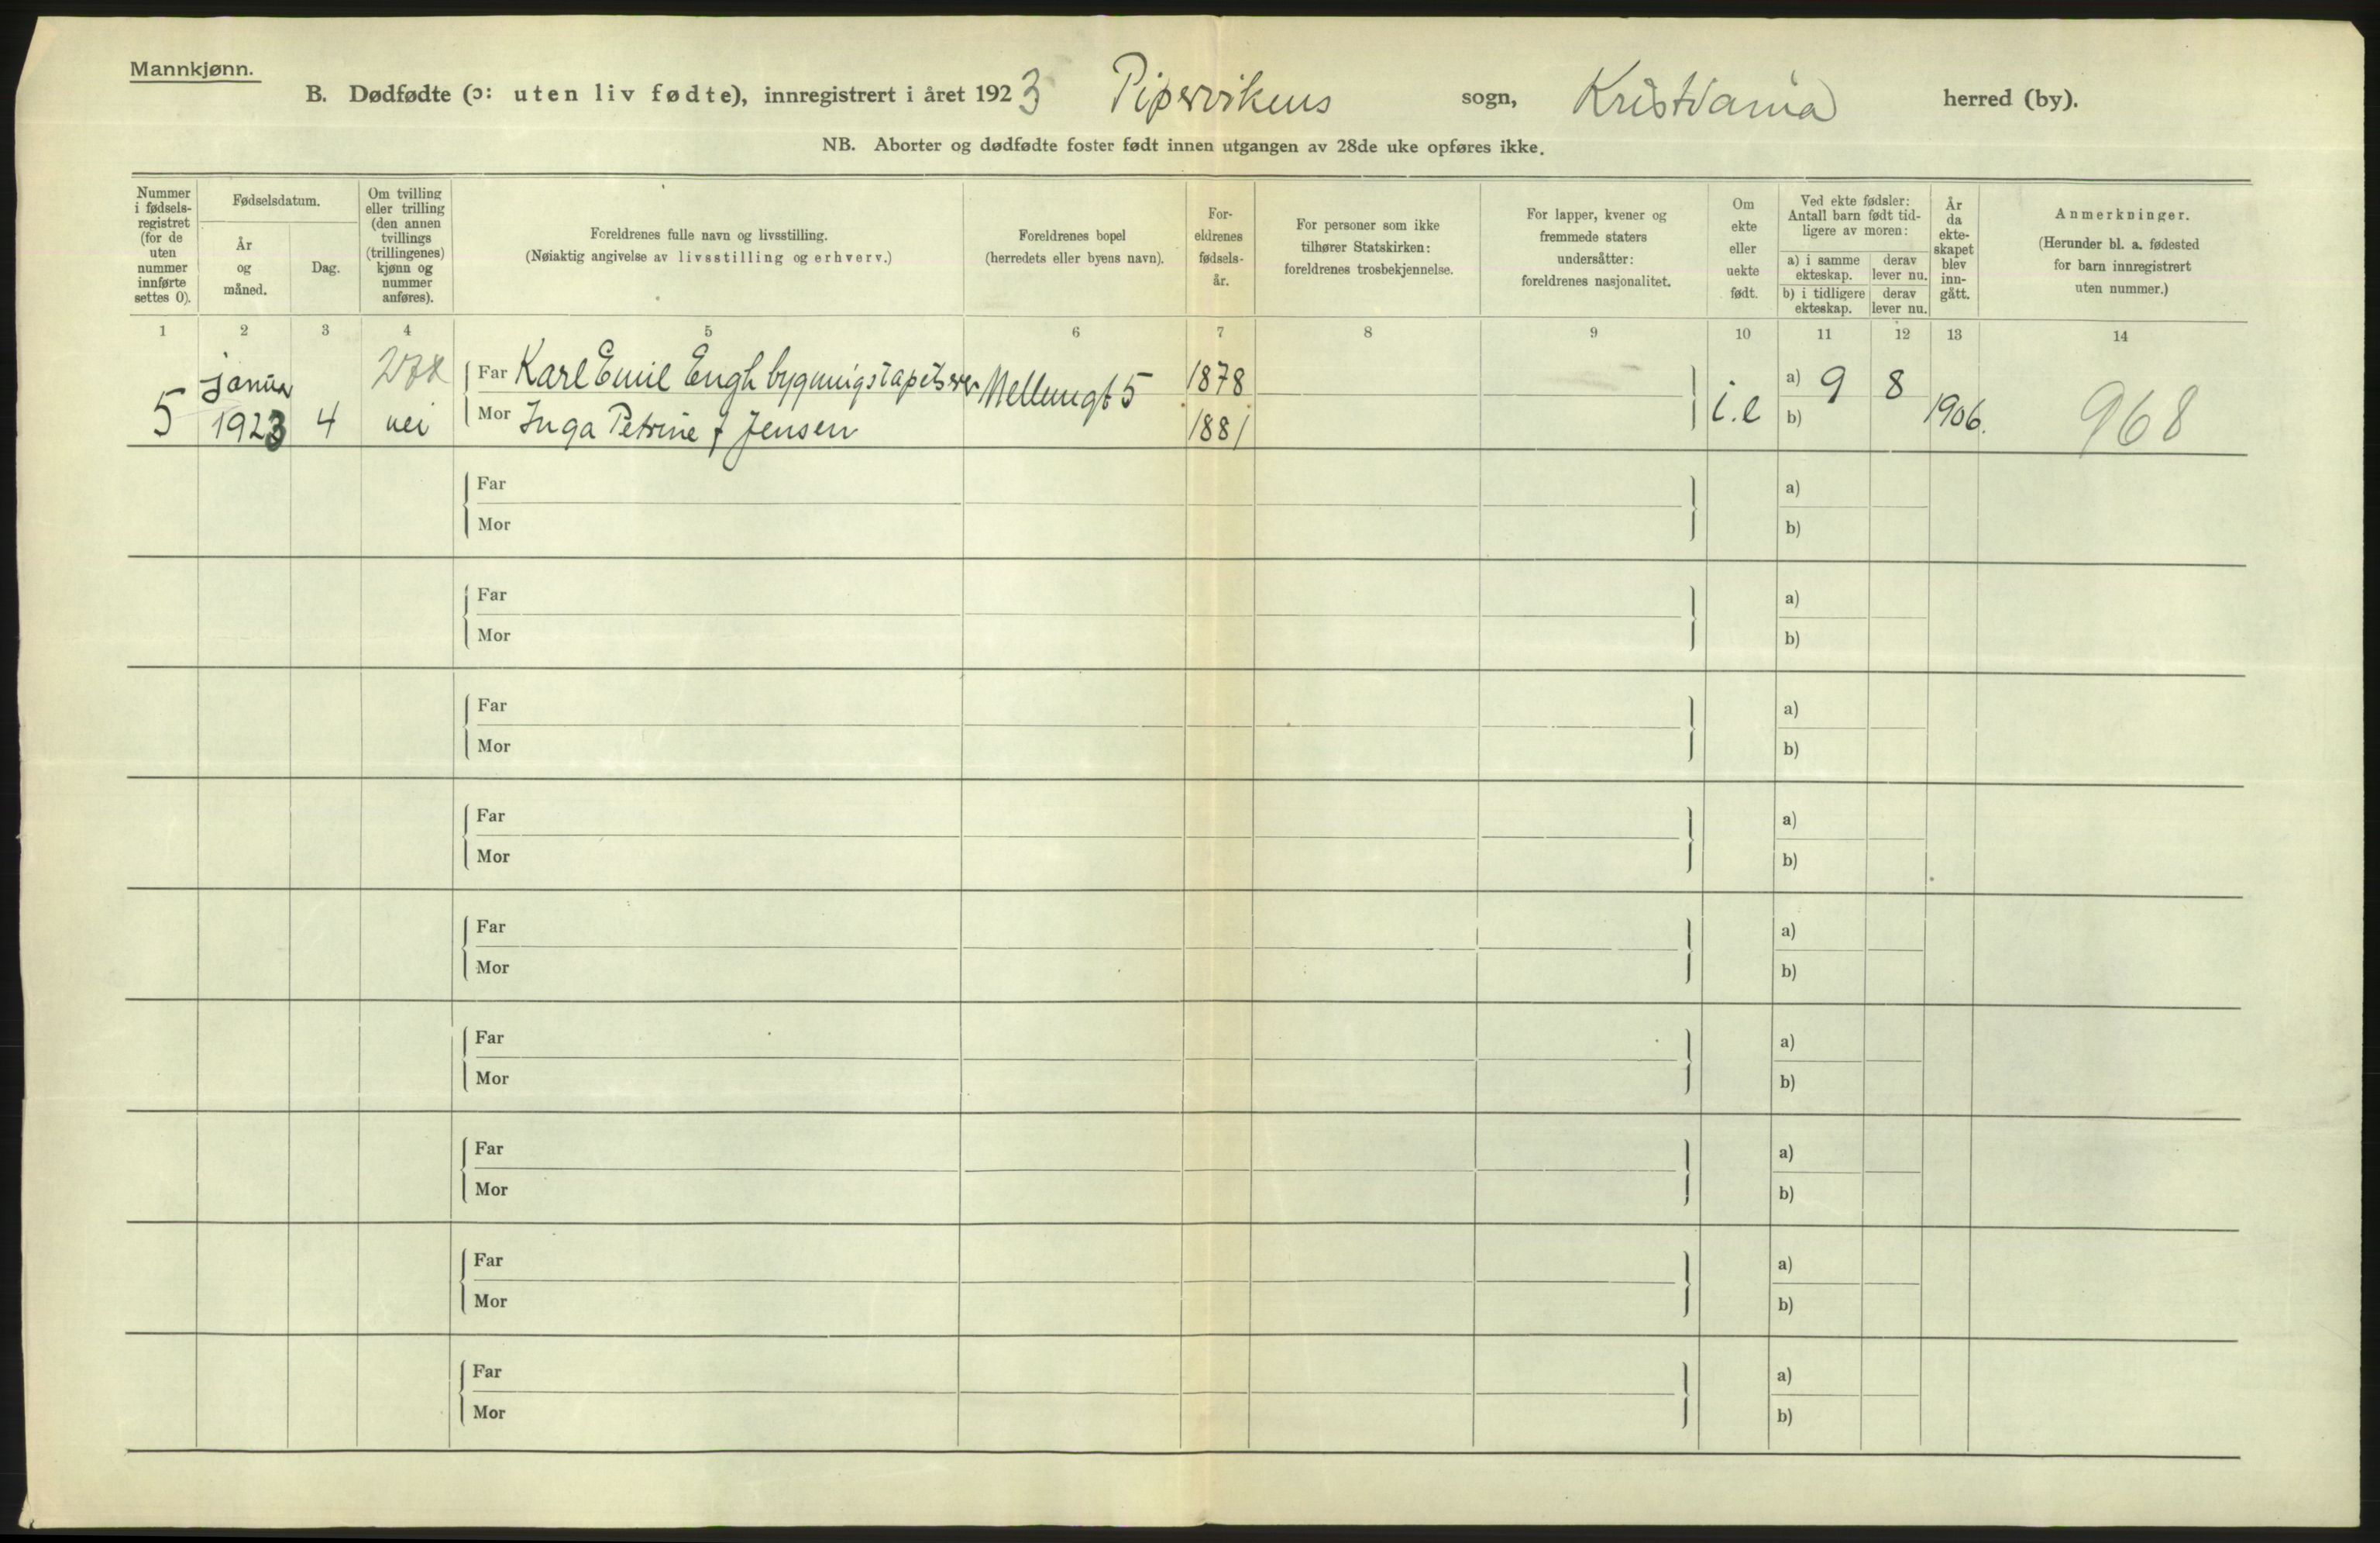 Mannkjønn.
B. Dødfødte (ɔ: uten liv fødte), innregistrert i året 1923 Pipervikens sogn, Kristiania herred (by).
NB. Aborter og dødfødte foster født innen utgangen av 28de uke opføres ikke.
Nummer
i fødsels-
registret
(for de
uten
nummer
innførte
settes 0).
Fødselsdatum.
År
og
måned.
Dag.
Om tvilling
eller trilling
(den annen
tvillings
(trillingenes)
kjønn og
nummer
anføres).
Foreldrenes fulle navn og livsstilling.
(Nøiaktig angivelse av livsstilling og erhverv.)
Foreldrenes bopel
(herredets eller byens navn).
For-
eldrenes
fødsels-
år.
For personer som ikke
tilhører Statskirken:
foreldrenes trosbekjennelse.
For lapper, kvener og
fremmede staters
undersåtter:
foreldrenes nasjonalitet.
Om
ekte
eller
uekte
født.
Ved ekte fødsler:
Antall barn født tid-
ligere av moren:
a) i samme
ekteskap.
derav
lever nu.
b) i tidligere
ekteskap.
derav
lever nu.
År
da
ekte-
skapet
blev
inn-
gått.
Anmerkninger.
(Herunder bl. a. fødested
for barn innregistrert
uten nummer.)
1 2 3 4 5 6 7 8 9 10 11 12 13 14
januar Far Karl Emil Engh bygningstapetserer Mellumgt 5 1878 a) 9 8
5 1923 4 nei Mor Inga Petrine f Jensen 1881 i.e b) 1906. 968
Far a)
Mor b)
Far a)
Mor b)
Far a)
Mor b)
Far a)
Mor b)
Far a)
Mor b)
Far a)
Mor b)
Far a)
Mor b)
Far a)
Mor b)
Far a)
Mor b)